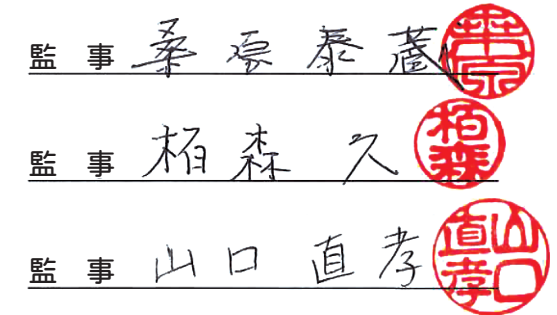 監事 桑原泰蔵 桑原
監事 栢森 久 栢森
監事 山口 直孝 山口直孝